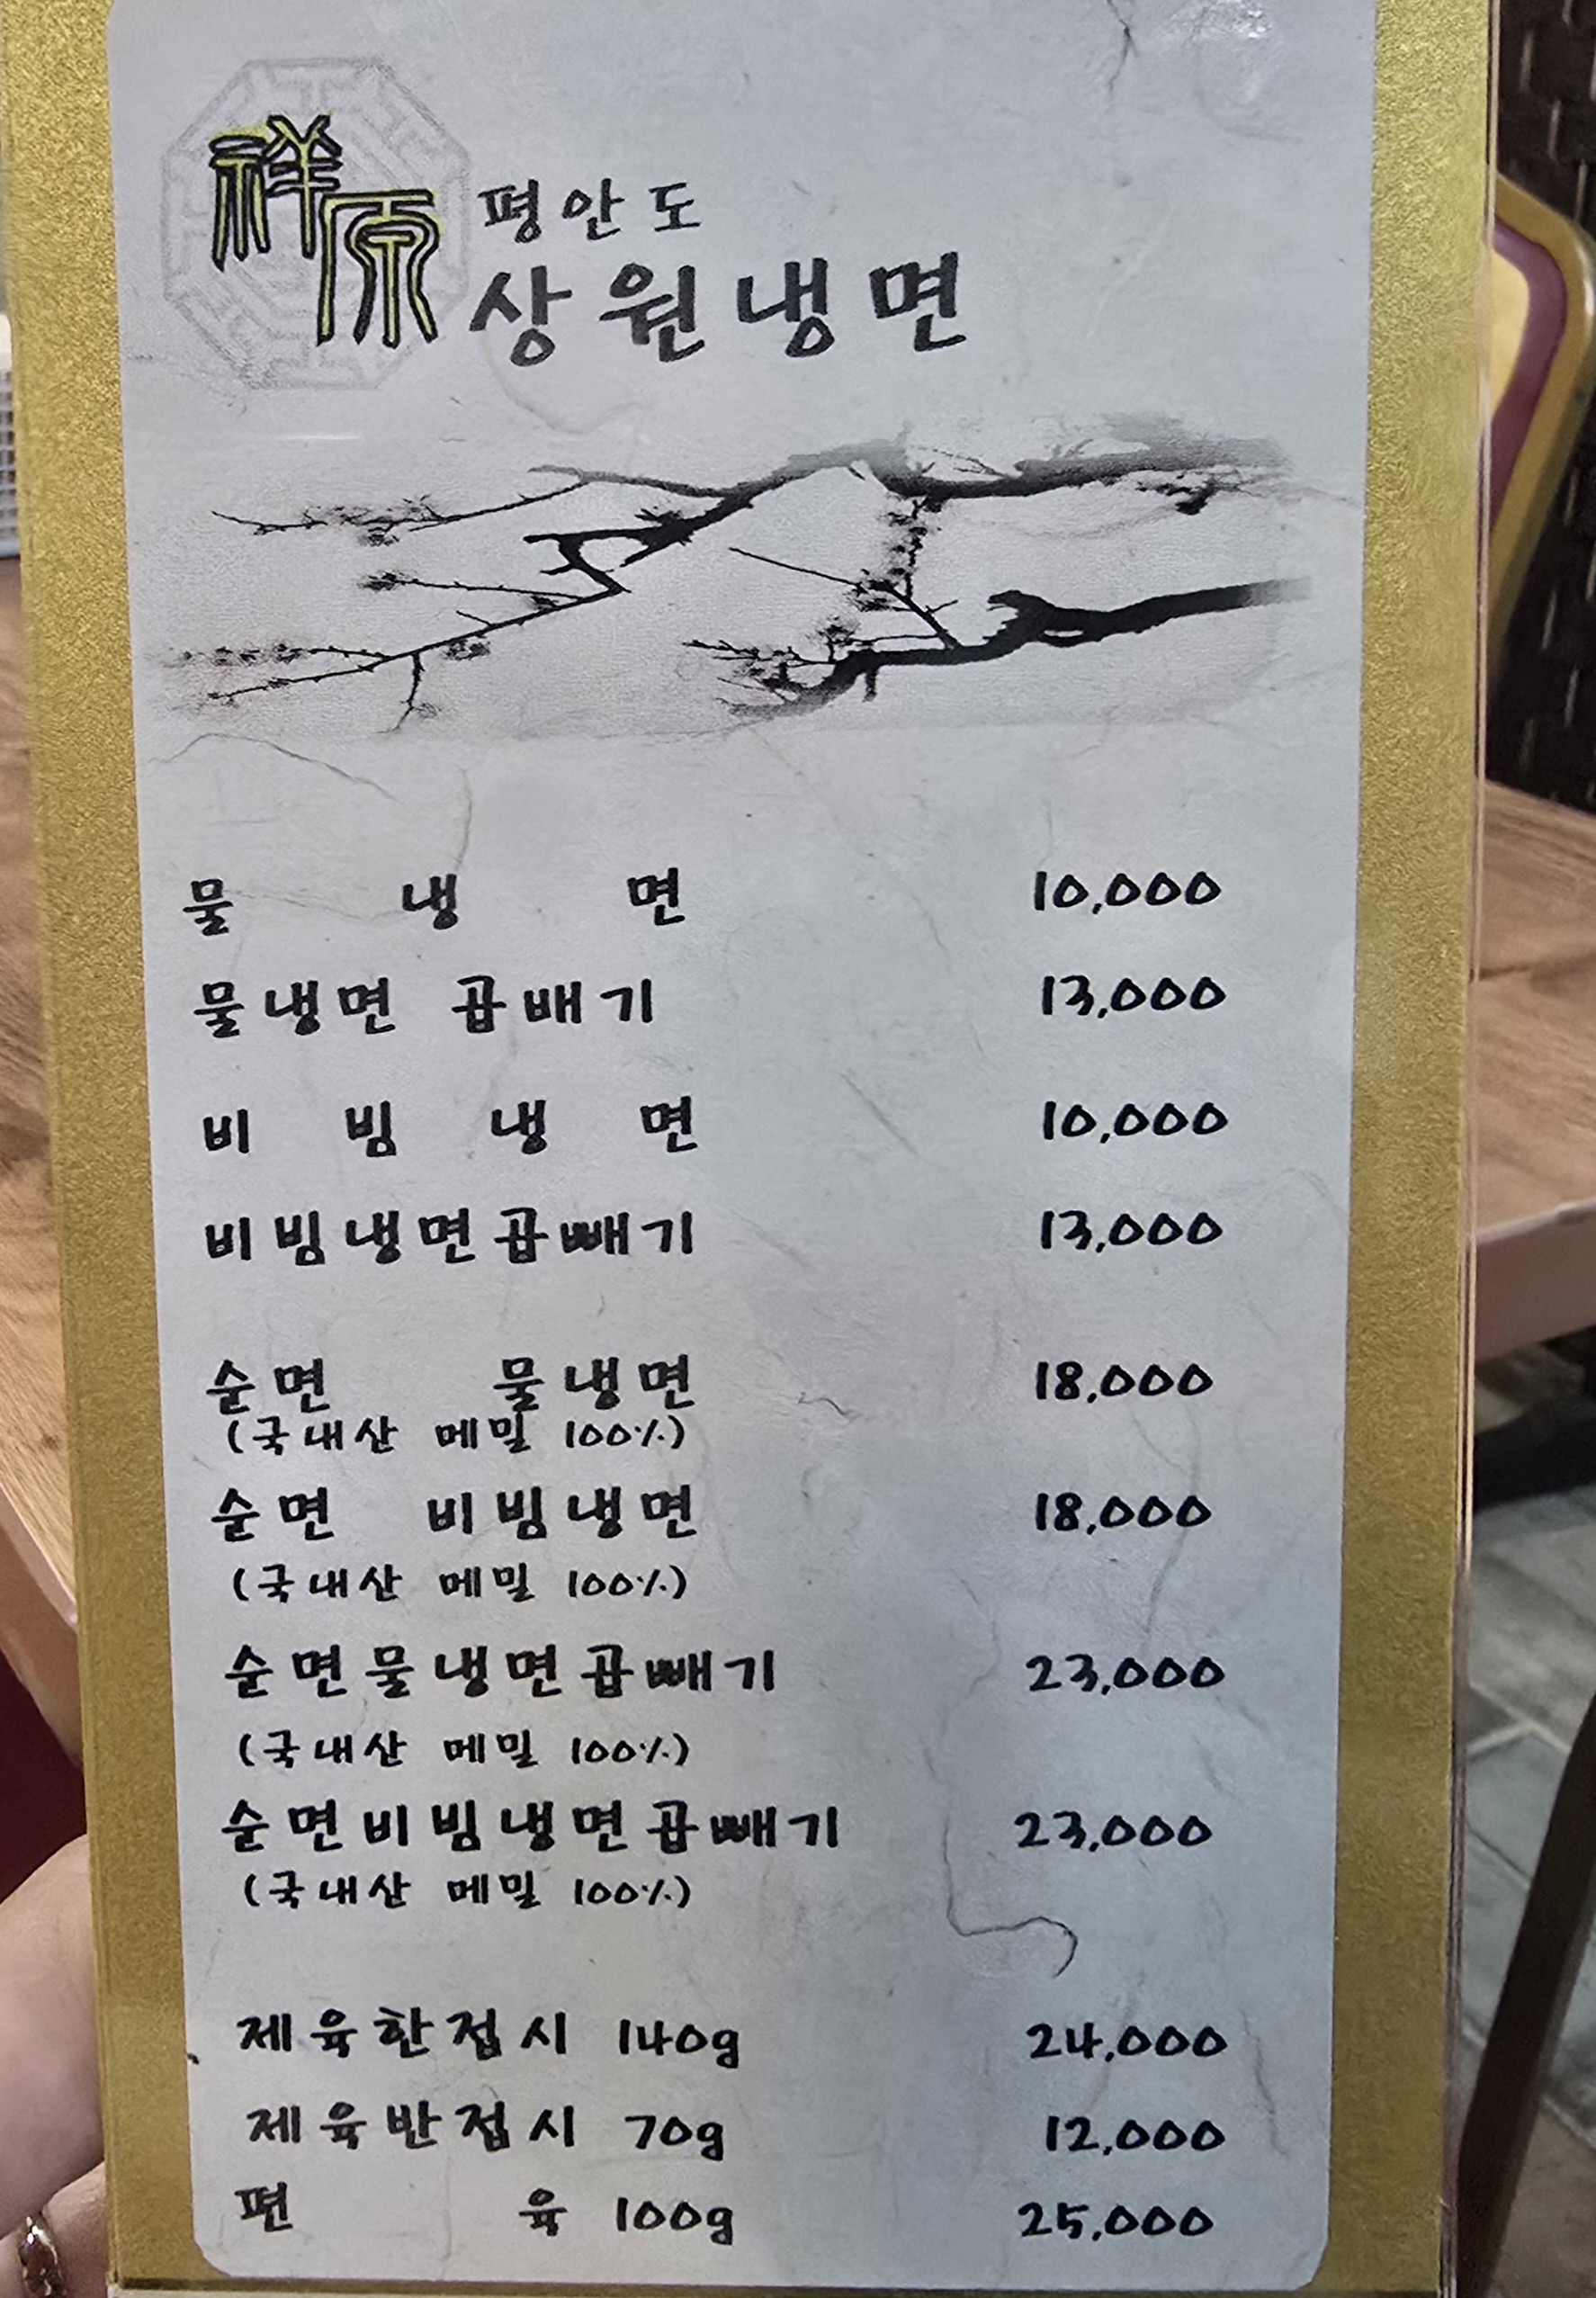 祥原
평안도
상원냉면
물 냉 면 10,000
물냉면 곱배기 13,000
비 빔 냉 면 10,000
비빔냉면곱빼기 13,000
순면 물냉면 18,000
(국내산 메밀 100%)
순면 비빔냉면 18,000
(국내산 메밀 100%)
순면물냉면곱빼기 23,000
(국내산 메밀 100%)
순면비빔냉면곱빼기 23,000
(국내산 메밀 100%)
제육한접시 140g 24,000
제육반접시 70g 12,000
편 육 100g 25,000